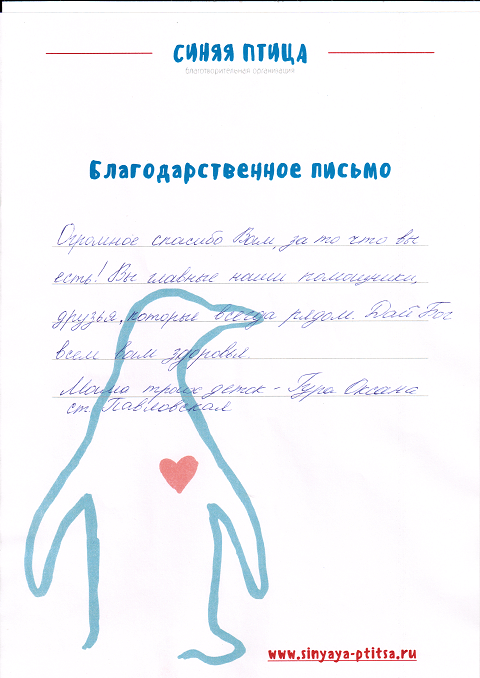 СИНЯЯ ПТИЦА
благотворительная организация
Благодарственное письмо
Огромное спасибо Вам, за то что вы
есть! Вы главные наши помощники,
друзья, которые всегда рядом. Дай Бог
всем вам здоровья.
Мама троих деток - Гура Оксана
ст. Павловская
www.sinyaya-ptitsa.ru